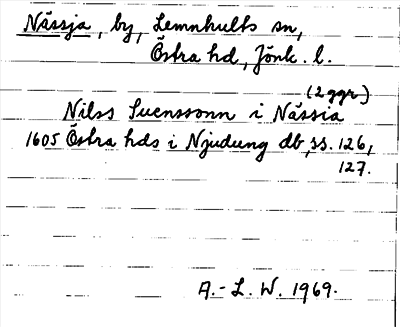 Nässja, by, Lemnhults sn,
Östra hd, Jönk. l.
(2 ggr)
Nilss Suenssonn i Nässia
1605 Östra hds i Njudung db, ss. 126,
127.
A.-L. W. 1969.